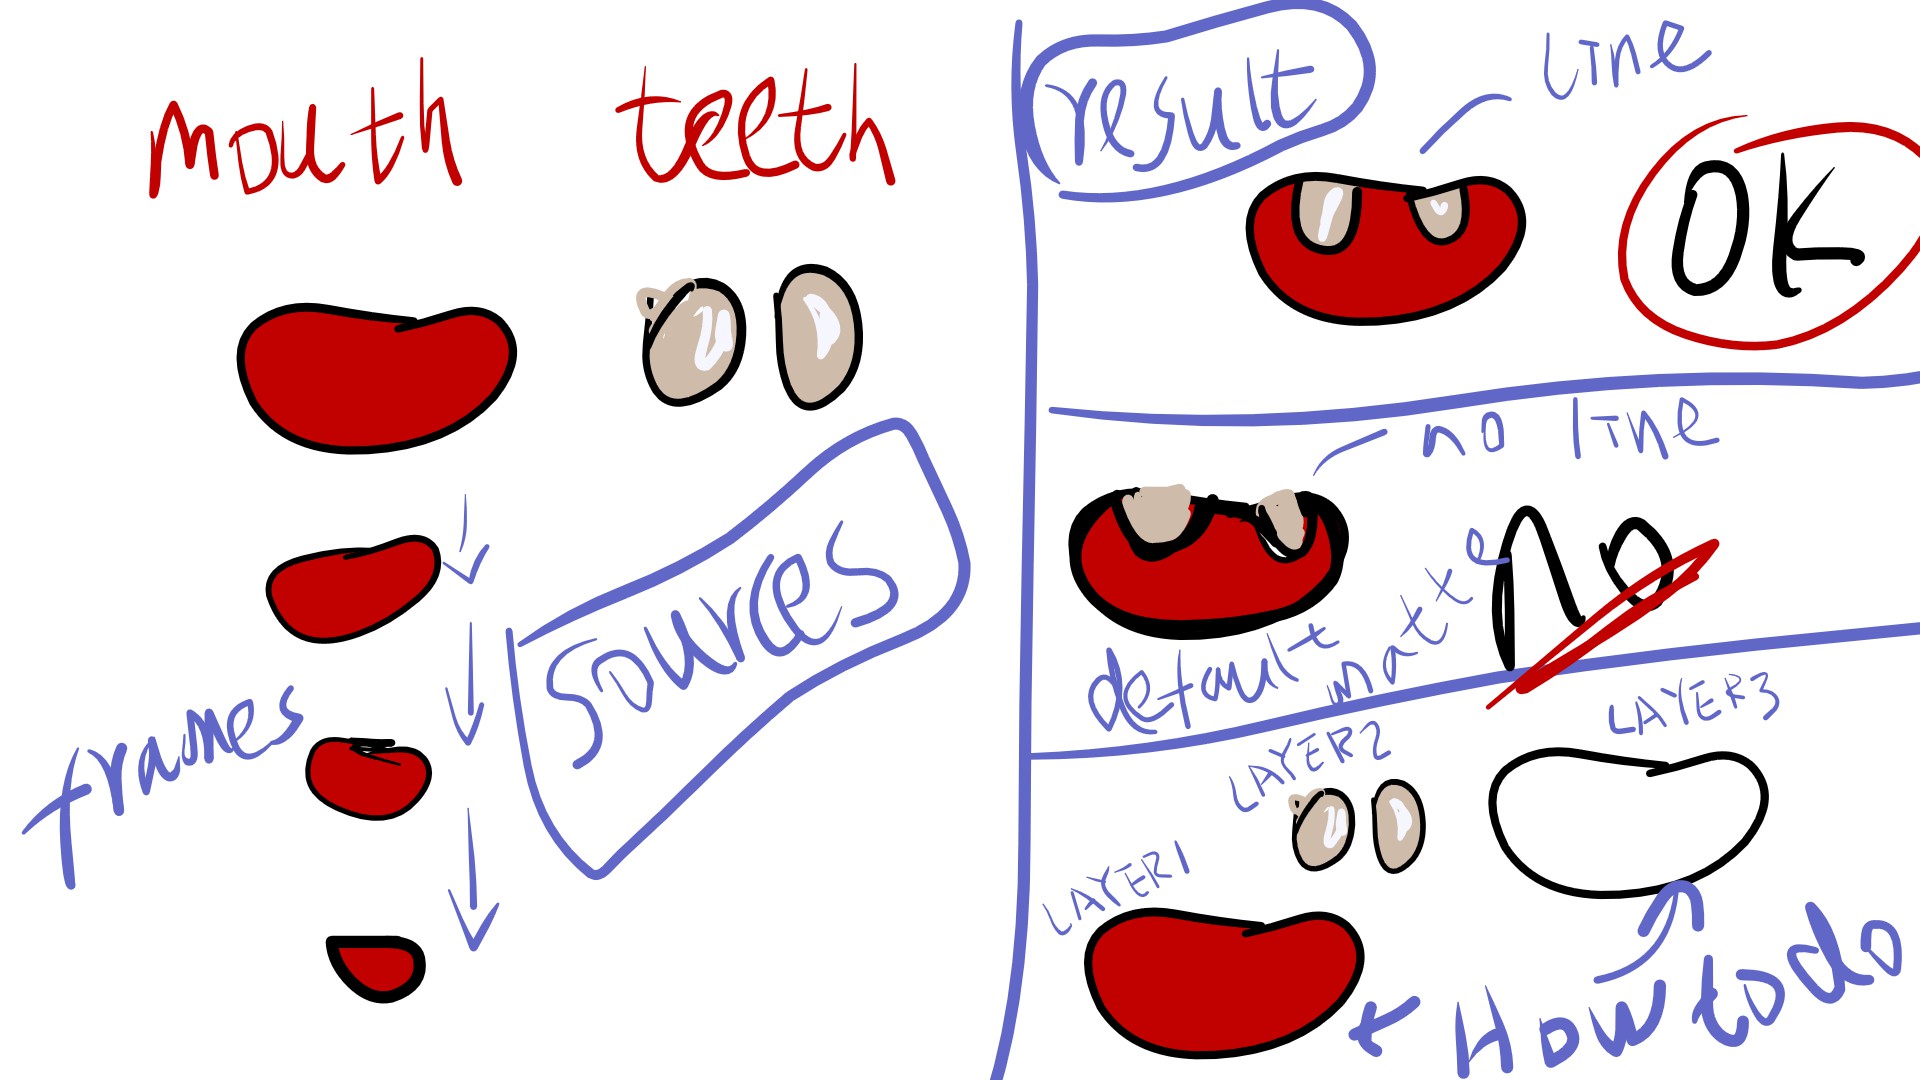 mouth
teeth
frames
sources
result
LINE
OK
no line
default matte
No
LAYER1
LAYER2
LAYER3
How to do